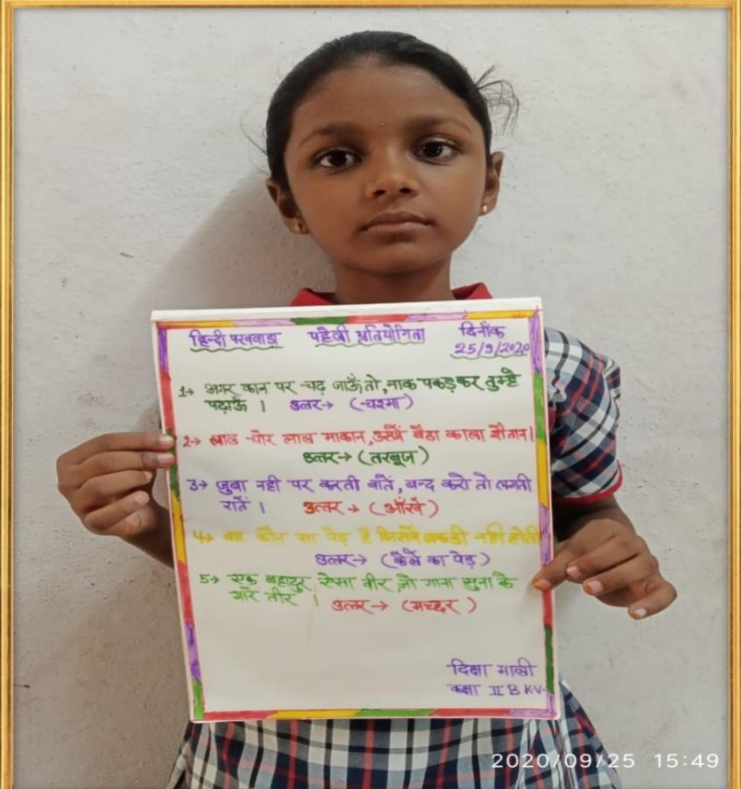 हिन्दी पखवाड़ा पहेली प्रतियोगिता दिनांक
25/9/2020
1→ अगर कान पर चढ़ जाऊँ तो, नाक पकड़ कर तुम्हे
पढ़ाऊँ । उत्तर→ (चश्मा)
2→ लाल चोर लाल माकान, उसमें बैठा काला शैतान।
उत्तर→ (तरबूज)
3→ जुबा नही पर करती बातें, बन्द करो तो लगती
रातें । उत्तर → (आँखे)
4→ वह कौन सा पेड़ है जिसमें लकडी नही होति
उत्तर→ (केले का पेड़)
5→ एक बहादुर ऐसा वीर, जो गाना सुना के
मारे तीर । उत्तर → (मच्छर)
दिक्षा माली
कक्षा II B KV-
2020/09/25 15:49